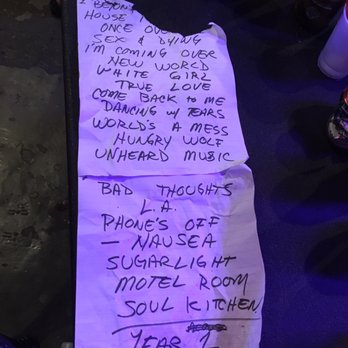 I BEYOND
HOUSE I
ONCE OVER
SEX & DYING
I'M COMING OVER
NEW WORLD
WHITE GIRL
TRUE LOVE
COME BACK TO ME
DANCING W/ TEARS
WORLD'S A MESS
HUNGRY WOLF
UNHEARD MUSIC
BAD THOUGHTS
L.A.
PHONE'S OFF
— NAUSEA
SUGARLIGHT
MOTEL ROOM
SOUL KITCHEN
YEAR 1